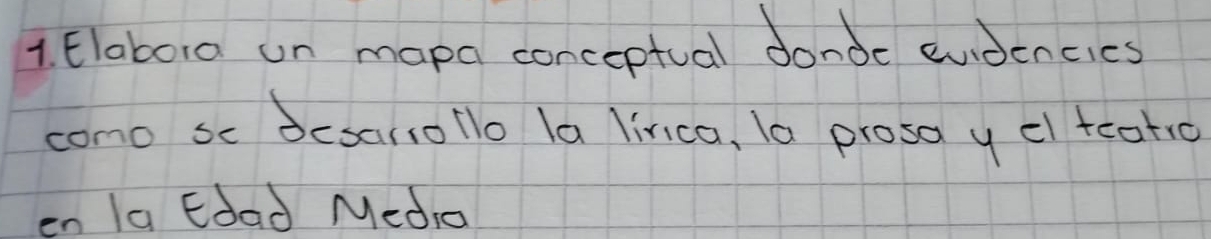 1. Elabora un mapa conceptual donde evidencies
como se desarrollo la lírica, la prosa y el teatro
en la Edad Media